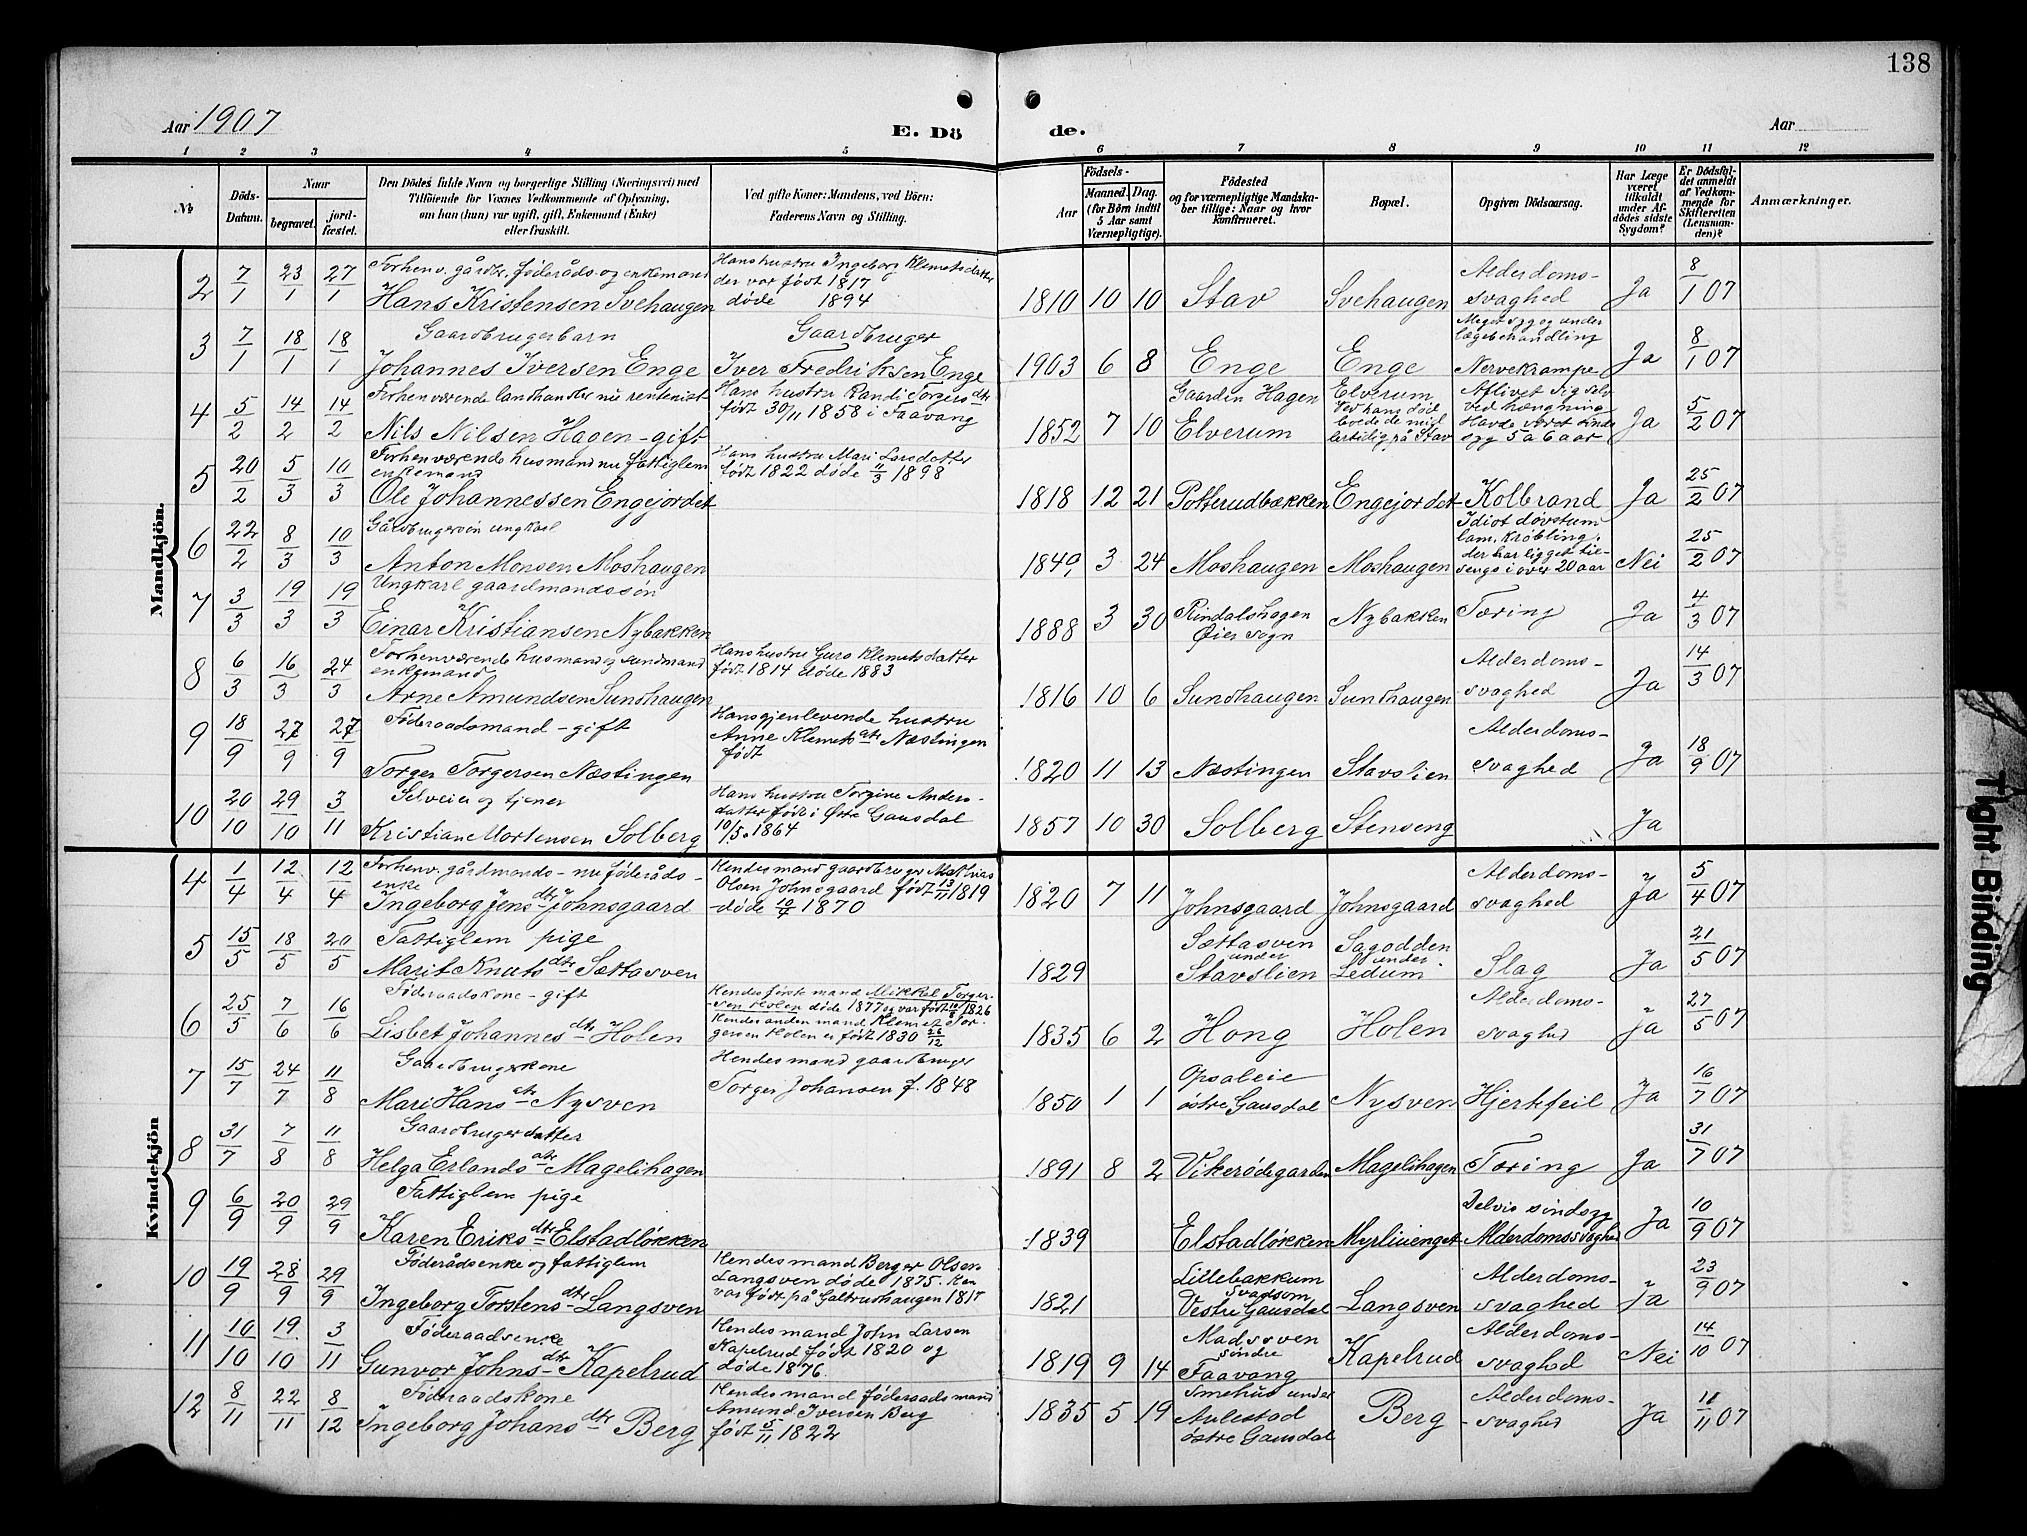 138
Aar 1907
E. Dö
de.
Aar
1 2 3 4 5 6 7 8 9 10 11 12
№
Döds-Datum.
Naar
begravet.
jord-fæstet.
Den Dödes fulde Navn og borgerlige Stilling (Næringsvei) med
Tilföiende for Voxnes Vedkommende af Oplysning,
om han (hun) var ugift, gift, Enkemand (Enke)
eller fraskilt.
Ved gifte Koner: Mandens, ved Börn:
Faderens Navn og Stilling.
Födsels-
Aar
Maaned. Dag.
(for Börn indtil
5 Aar samt
Værnepligtige).
Födested
og for værnepligtige Mandska-
ber tillige: Naar og hvor
konfirmeret.
Bopæl.
Opgiven Dödsaarsag.
Har Læge
været
tilkaldt
under Af-
dödes sidste
Sygdom?
Er Dödsfal-
det anmeldt
af Vedkom-
mende for
Skifteretten
(Lensman-
den)?
Anmærkninger.
Mandkjön.
2 7/1 23/1 27/1 Forhenv. gårdbr. føderåds- og enkemand
Hans Kristensen Svehaugen
Hans hustru Ingeborg Klemetsdatter
der var født 1817
døde 1894
1810 10 10 Stav Svehaugen Alderdoms-
svaghed Ja 8/1 07
3 7/1 18/1 18/1 Gaardbrugerbarn
Johannes Iversen Enge
Gaardbruger
Iver Fredriksen Enge
1903 6 8 Enge Enge Meget syg og under
lægebehandling
Nervekrampe Ja 8/1 07
4 5/2 14/2 14/2 Forhenværende landhandler nu rentenist
Nils Nilsen Hagen - gift
Hans hustru Randi Torgersdtr
født 30/11 1858 i Faavang
1852 7 10 Gaarden Hagen
Elverum
Elverum
Ved hans død
boede de mid-
lertidig på Stav
Aflivet sig selv
ved hængning
Havde været sinds
syg 5 a 6 aar
Ja 5/2 07
5 20/2 5/3 10/3 Forhenværende husmand nu fattiglem
enkemand
Ole Johannessen Engejordet
Hans hustru Mari Larsdatter
født 1822 døde 11/3 1898
1818 12 21 Potterudbækken Engejordet Kolbrand Ja 25/2 07
6 22/2 8/3 10/3 Gårdbrugersøn ungkarl
Anton Monsen Moshaugen
1849 3 24 Moshaugen Moshaugen Idiot døvstum
lam, krøbling,
der har ligget til-
sengs i over 20 aar Nei 25/2 07
7 3/3 19/3 19/3 Ungkarl gaardmandssøn
Einar Kristiansen Nybakken
1888 3 30 Rindalshagen
Øier sogn Nybakken Tæring Ja 4/3 07
8 6/3 16/3 24/3 Forhenværende husmand og sundmand
enkemand
Arne Amundsen Sundhaugen
Hans hustru Guro Klemetsdatter
født 1814 døde 1883
1816 10 6 Sundhaugen Sundhaugen Alderdoms-
svaghed Ja 14/3 07
9 18/9 27/9 27/9 Føderaadsmand - gift
Torger Torgersen Næstingen
Hans gjenlevende hustru
Anne Klemetsdtr Næstingen
født
1820 11 13 Næstingen Stavslien Alderdoms-
svaghed Ja 18/9 07
10 20/10 29/10 3/11 Selveier og tjener
Kristian Mortensen Solberg
Hans hustru Torgine Anders-
datter født i Østre Gausdal
10/5 1864
1857 10 30 Solberg Stenseng Ja
Kvindekjön
4 1/4 12/4 12/4 Forhenv. gårdmands- nu føderåds-
enke
Ingeborg Jensdtr Johnsgaard
Hendes mand gaardbruger Mathias
Olsen Johnsgaard født 13/11 1819
døde 10/4 1870
1820 7 11 Johnsgaard Johnsgaard Alderdoms-
svaghed Ja 5/4 07
5 15/5 18/5 20/5 Fattiglem pige
Marit Knutsdtr Sættasven
1829 Sættasven
under
Stavslien
Sagodden
under
Ledum
Slag Ja 21/5 07
6 25/5 7/6 16/6 Føderaadskone - gift
Lisbet Johannesdtr Holen
Hendes første mand Mikkel Torger-
sen Holen døde 1877 og var født 1826
Hendes anden mand Klemet Tor-
gersen Holen er født 1830 26/12
1835 6 2 Hong Holen Alderdoms-
svaghed Ja 27/5 07
7 15/7 24/7 11/8 Gaardbrugerkone
Mari Hansdtr Nysven
Hendes mand gaardbruger
Torger Johansen f. 1848
1850 1 1 Opsaleie
østre Gausdal Nysven Hjertefeil Ja 16/7 07
8 31/7 7/8 11/8 Gaardbrugerdatter
Helga Erlandsdtr Magelihagen
1891 8 2 Vikerødegarden Magelihagen Tæring Ja 31/7 07
9 6/9 20/9 29/9 Fattiglem pige
Karen Eriksdtr Elstadløkken
1839 Elstadløkken Myrliænget Delvis sindssyg
Alderdomssvaghed Ja 10/9 07
10 19/9 28/9 29/9 Føderådsenke og fattiglem
Ingeborg Torstensdtr Langsven
Hendes mand Berger Olsen
Langsven døde 1875. Han
var født på Galtrudhaugen 1817
1821 Lillebakkum
Svadsom
Vestre Gausdal Langsven Alderdoms-
svaghed Ja 23/9 07
11 10/10 19/10 3/11 Føderaadsenke
Gunvor Johnsdtr Kapelrud
Hendes mand John Larsen
Kapelrud født 1820 og
døde 1876.
1819 9 14 Madssven
søndre
Faavang Kapelrud Alderdoms-
svaghed Nei 14/10 07
12 8/11 22/11 8/12 Føderaadskone
Ingeborg Johansdtr Berg
Hendes mand føderaadsmand
Amund Iversen Berg
født 5/11 1822
1835 5 19 Smehus under
Aulestad
østre Gausdal Berg Alderdoms-
svaghed Ja 11/11 07
Tight Binding